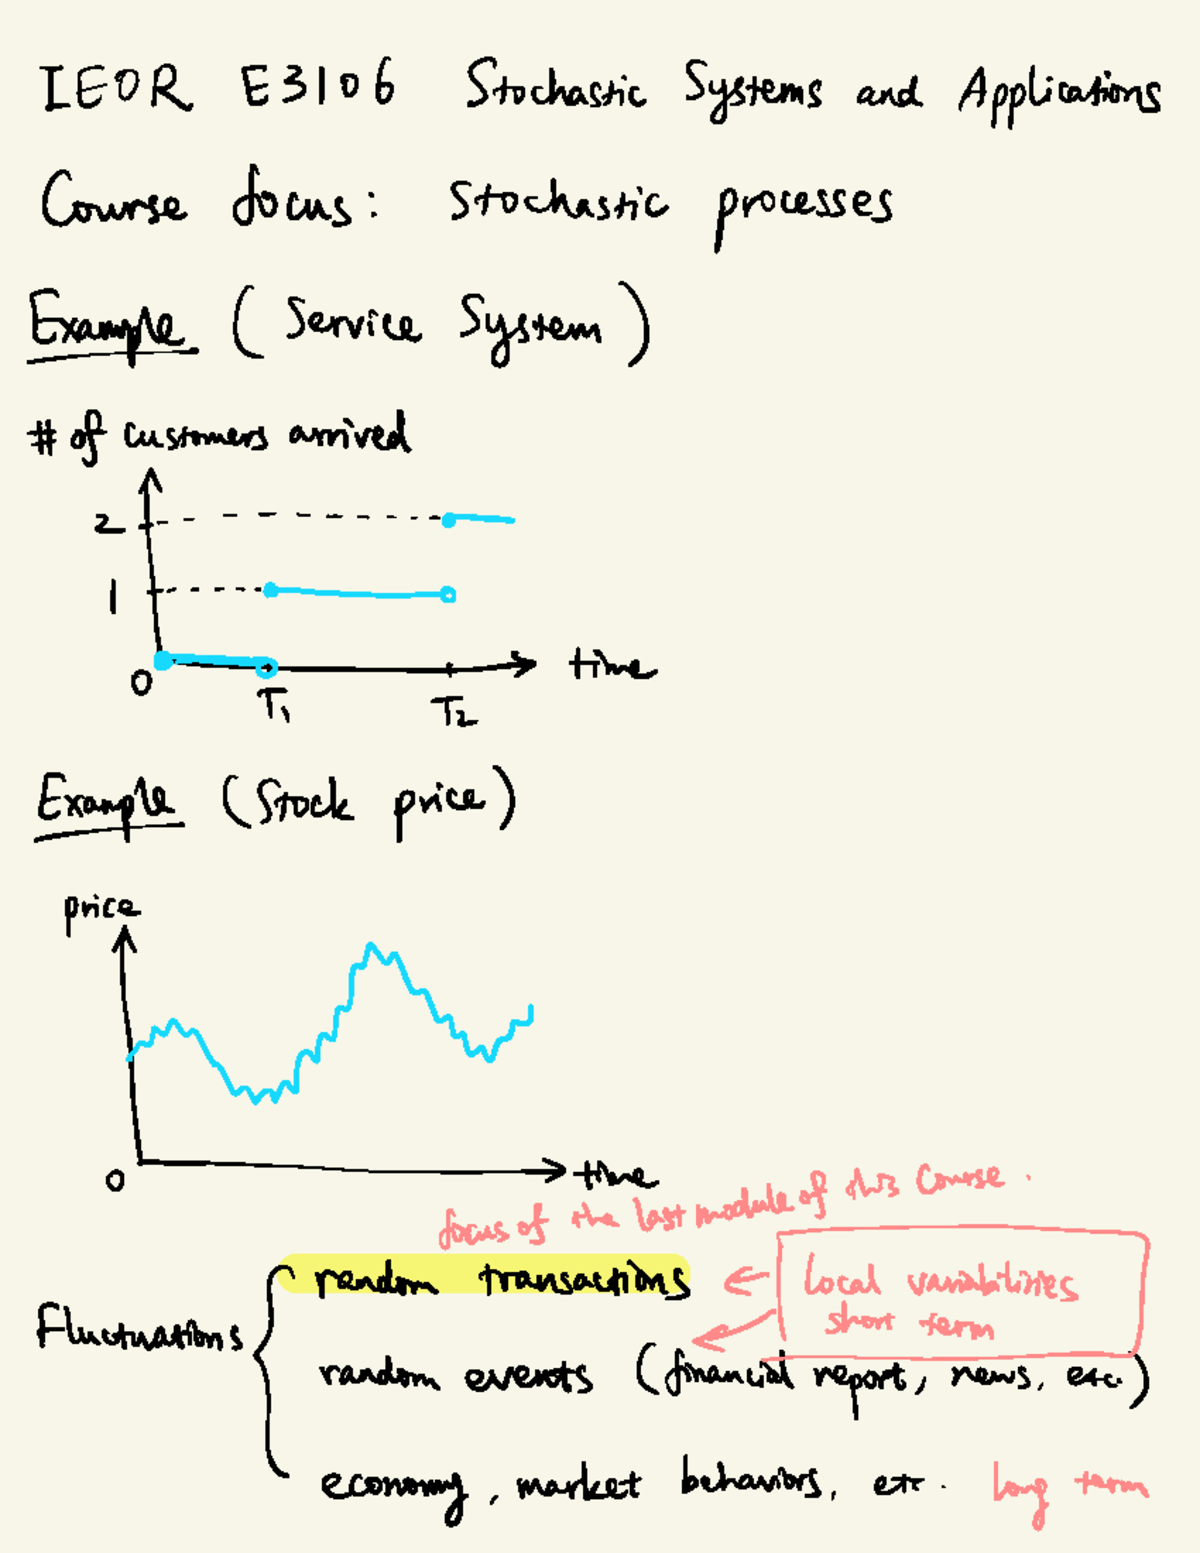 IEOR E3106 Stochastic Systems and Applications
Course focus: Stochastic processes
Example (Service System)
# of customers arrived
2
1
0
T₁
T₂
time
Example (Stock price)
price
0
time
focus of the last module of this course.
random transactions
local variabilities
short term
Fluctuations
random events (financial report, news, etc.)
economy, market behaviors, etc. long term